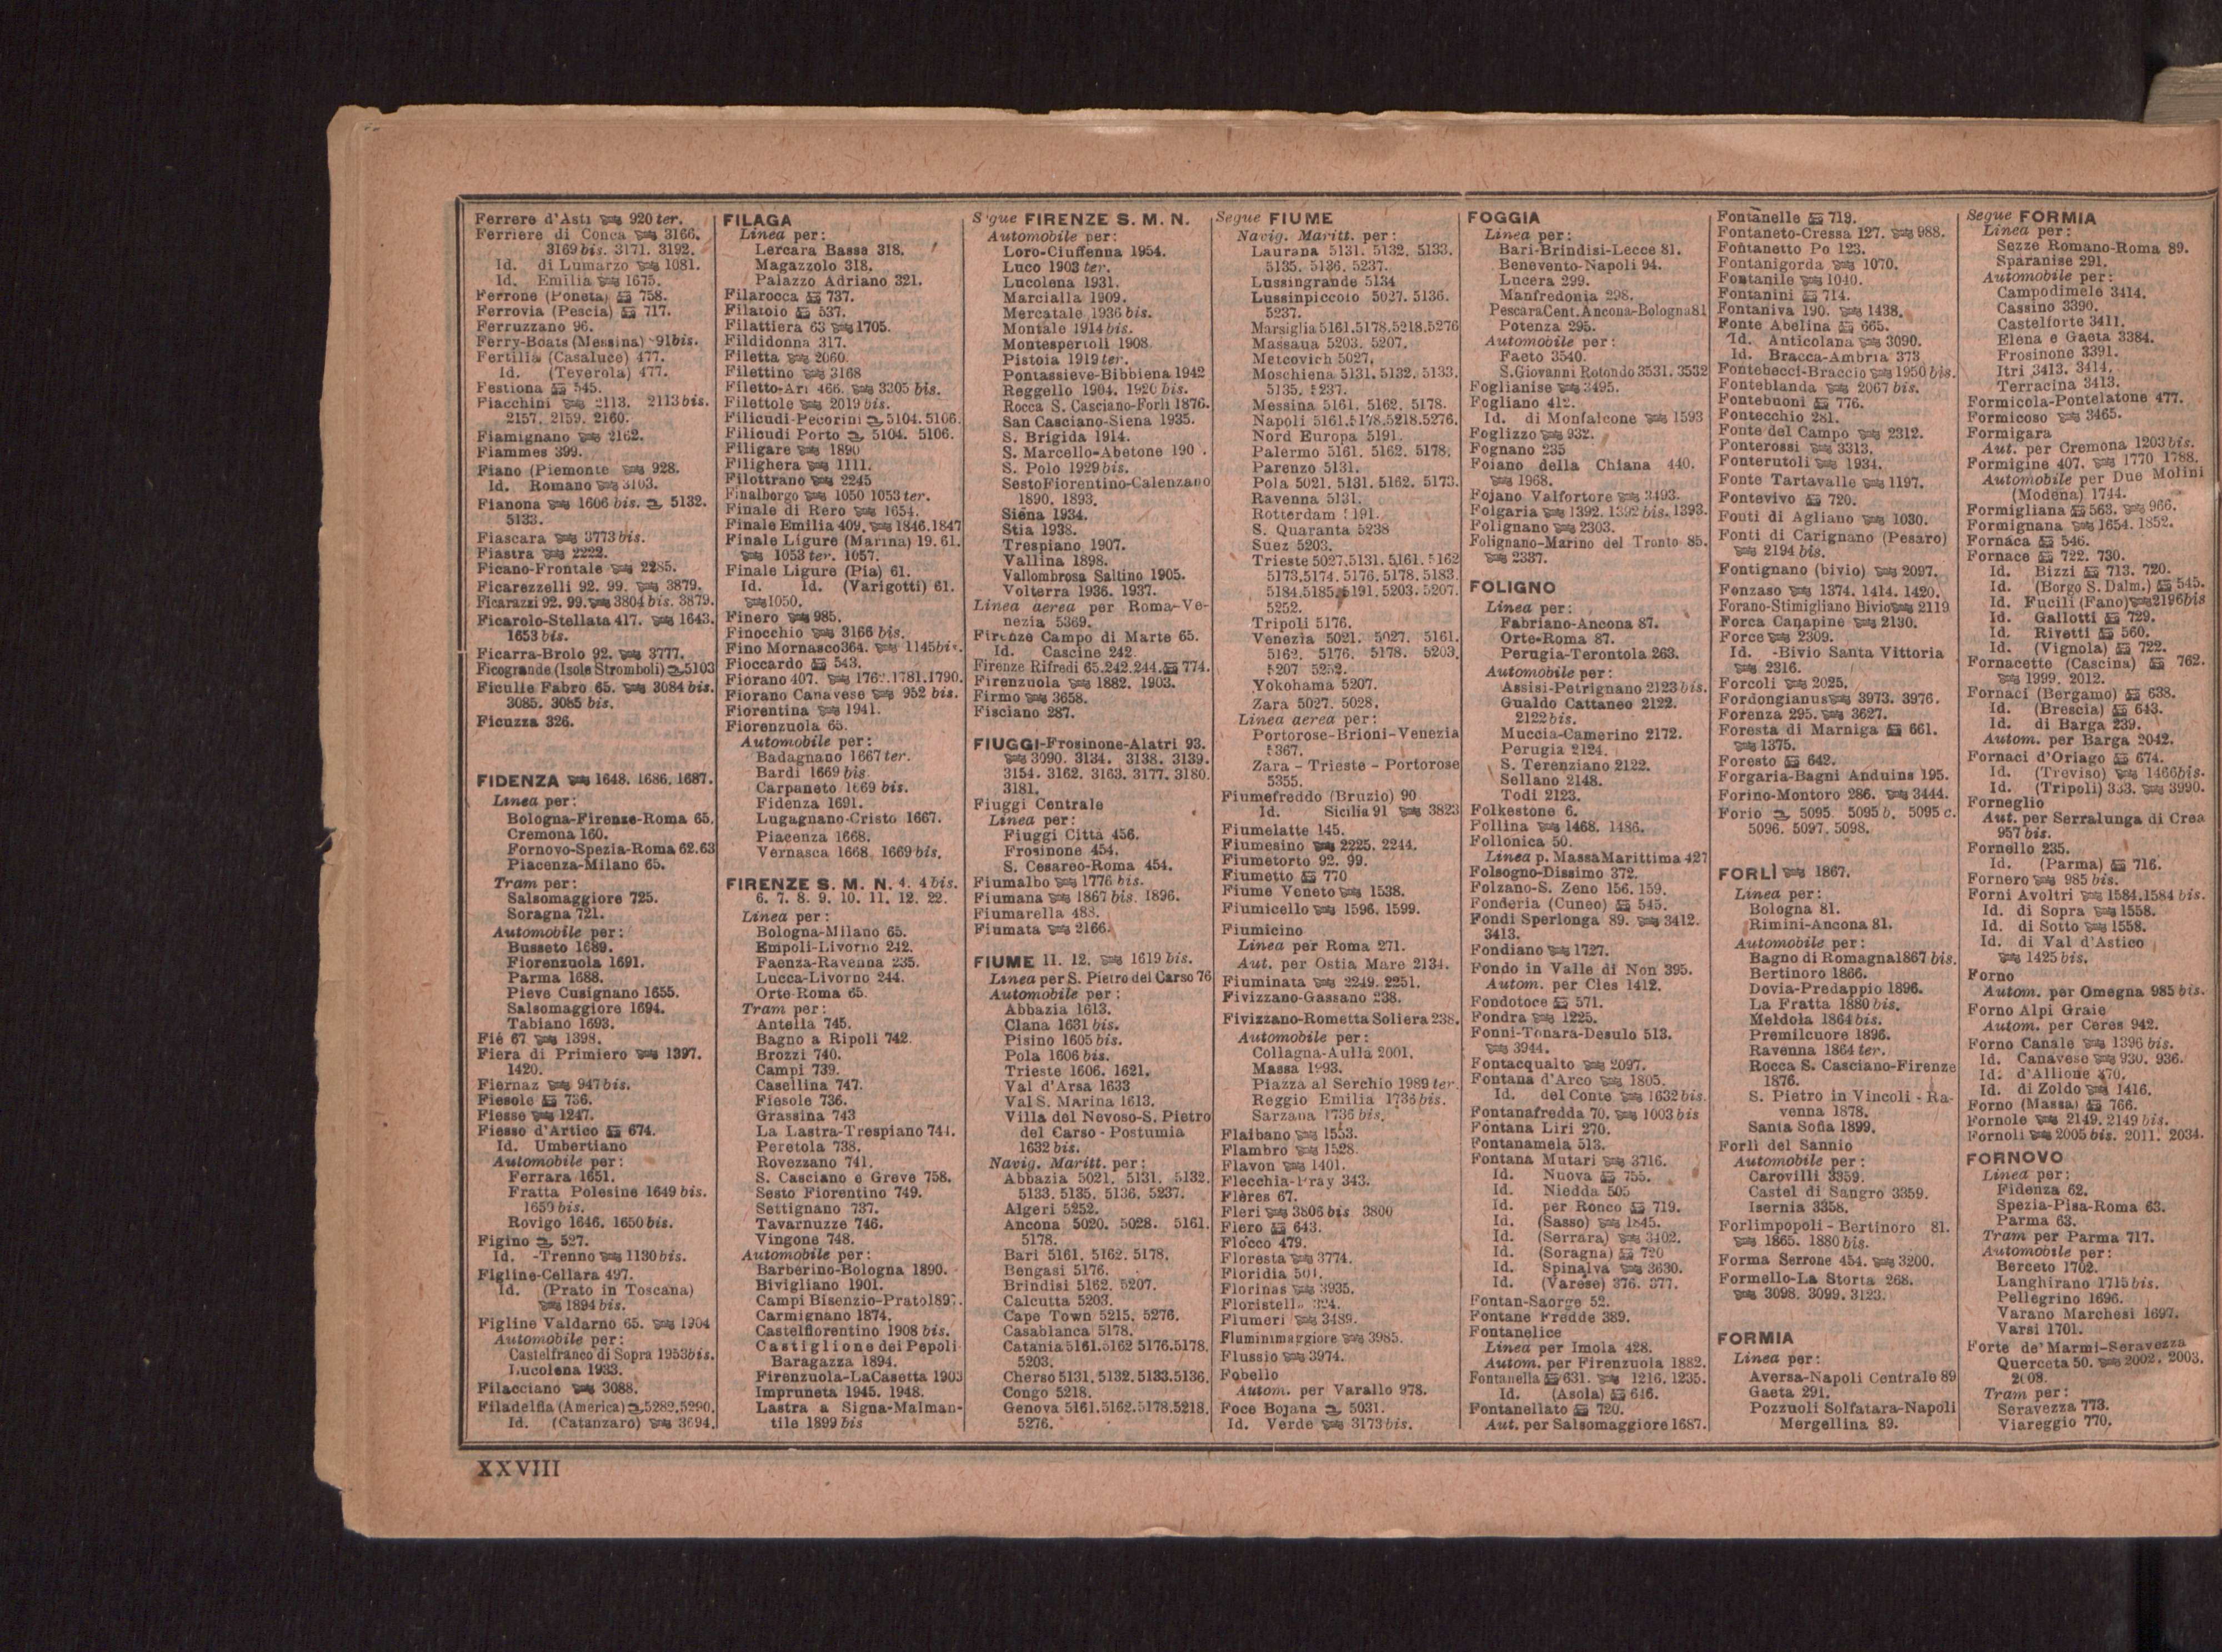 Ferrere d'Asti 920 ter.
Ferriere di Conca 3166.
3169 bis. 3171. 3192.
Id. di Lumarzo 1081.
Id. Emilia 1675.
Ferrone (Poneta) 758.
Ferrovia (Pescia) 717.
Ferruzzano 96.
Ferry-Boats (Messina) 91 bis.
Fertilia (Casaluce) 477.
Id. (Teverola) 477.
Festiona 545.
Fiacchini 2113. 2113 bis.
2157. 2159. 2160.
Fiamignano 2162.
Fiammes 399.
Fiano (Piemonte 928.
Id. Romano 3103.
Fianona 1606 bis. 5132.
5133.
Fiascara 3773 bis.
Fiastra 2222.
Ficano-Frontale 2285.
Ficarezzelli 92. 99. 3879.
Ficarazzi 92. 99. 3804 bis. 3879.
Ficarolo-Stellata 417. 1643.
1653 bis.
Ficarra-Brolo 92. 3777.
Ficogrande (Isole Stromboli) 5103
Ficulle Fabro 65. 3084 bis.
3085. 3085 bis.
Ficuzza 326.
FIDENZA 1648. 1686. 1687.
Linea per:
Bologna-Firenze-Roma 65.
Cremona 160.
Fornovo-Spezia-Roma 62.63
Piacenza-Milano 65.
Tram per:
Salsomaggiore 725.
Soragna 721.
Automobile per:
Busseto 1689.
Fiorenzuola 1691.
Parma 1688.
Pieve Cusignano 1655.
Salsomaggiore 1694.
Tabiano 1693.
Fié 67 1398.
Fiera di Primiero 1397.
1420.
Fiernaz 947 bis.
Fiesole 736.
Fiesse 1247.
Fiesso d'Artico 674.
Id. Umbertiano
Automobile per:
Ferrara 1651.
Fratta Polesine 1649 bis.
1650 bis.
Rovigo 1646. 1650 bis.
Figino 527.
Id. -Trenno 1130 bis.
Figline-Cellara 497.
Id. (Prato in Toscana)
1894 bis.
Figline Valdarno 65. 1904
Automobile per:
Castelfranco di Sopra 1953 bis.
Lucolena 1933.
Filacciano 3088.
Filadelfia (America) 5282.5290.
Id. (Catanzaro) 3694.
FILAGA
Linea per:
Lercara Bassa 318.
Magazzolo 318.
Palazzo Adriano 321.
Filarocca 737.
Filatoio 537.
Filattiera 63 1705.
Fildidonna 317.
Filetta 2060.
Filettino 3168
Filetto-Ari 466. 3305 bis.
Filettole 2019 bis.
Filicudi-Pecorini 5104. 5106.
Filicudi Porto 5104. 5106.
Filigare 1890
Filighera 1111.
Filottrano 2245
Finalborgo 1050 1053 ter.
Finale di Rero 1654.
Finale Emilia 409. 1846.1847
Finale Ligure (Marina) 19. 61.
1053 ter. 1057.
Finale Ligure (Pia) 61.
Id. Id. (Varigotti) 61.
1050.
Finero 985.
Finocchio 3166 bis.
Fino Mornasco 364. 1145 bis.
Fioccardo 543.
Fiorano 407. 1762.1781.1790.
Fiorano Canavese 952 bis.
Fiorentina 1941.
Fiorenzuola 65.
Automobile per:
Badagnano 1667 ter.
Bardi 1669 bis
Carpaneto 1669 bis.
Fidenza 1691.
Lugagnano-Cristo 1667.
Piacenza 1668.
Vernasca 1668. 1669 bis.
FIRENZE S. M. N. 4. 4 bis.
6. 7. 8. 9. 10. 11. 12. 22.
Linea per:
Bologna-Milano 65.
Empoli-Livorno 242.
Faenza-Ravenna 235.
Lucca-Livorno 244.
Orte-Roma 65.
Tram per:
Antella 745.
Bagno a Ripoli 742.
Brozzi 740.
Campi 739.
Casellina 747.
Fiesole 736.
Grassina 743
La Lastra-Trespiano 744.
Peretola 738.
Rovezzano 741.
S. Casciano e Greve 758.
Sesto Fiorentino 749.
Settignano 737.
Tavarnuzze 746.
Vingone 748.
Automobile per:
Barberino-Bologna 1890.
Bivigliano 1901.
Campi Bisenzio-Prato
Carmignano 1874.
Castelfiorentino 1908 bis.
Castiglione dei Pepoli-
Baragazza 1894.
Firenzuola-LaCasetta 1903
Impruneta 1945. 1948.
Lastra a Signa-Malman-
tile 1899 bis
Segue FIRENZE S. M. N.
Automobile per:
Loro-Ciuffenna 1954.
Luco 1903 ter.
Lucolena 1931.
Marcialla 1909.
Mercatale 1936 bis.
Montale 1914 bis.
Montespertoli 1908.
Pistoia 1919 ter.
Pontassieve-Bibbiena 1942
Reggello 1904. 1920 bis.
Rocca S. Casciano-Forlì 1876.
San Casciano-Siena 1935.
S. Brigida 1914.
S. Marcello-Abetone
S. Polo 1929 bis.
Sesto Fiorentino-Calenzano
1890. 1893.
Siena 1934.
Stia 1938.
Trespiano 1907.
Vallina 1898.
Vallombrosa Saltino 1905.
Volterra 1936. 1937.
Linea aerea per Roma-Ve-
nezia 5369.
Firenze Campo di Marte 65.
Id. Cascine 242.
Firenze Rifredi 65.242.244. 774.
Firenzuola 1882. 1903.
Firmo 3658.
Fisciano 287.
FIUGGI-Frosinone-Alatri 93.
3090. 3134. 3138. 3139.
3154. 3162. 3163. 3177. 3180.
3181.
Fiuggi Centrale
Linea per:
Fiuggi Città 456.
Frosinone 454.
S. Cesareo-Roma 454.
Fiumalbo 1776 bis.
Fiumana 1867 bis. 1896.
Fiumarella 488.
Fiumata 2166.
FIUME 11. 12. 1619 bis.
Linea per S. Pietro del Carso 76
Automobile per:
Abbazia 1613.
Clana 1631 bis.
Pisino 1605 bis.
Pola 1606 bis.
Trieste 1606. 1621.
Val d'Arsa 1633
Val S. Marina 1613.
Villa del Nevoso-S. Pietro
del Carso - Postumia
1632 bis.
Navig. Maritt. per:
Abbazia 5021. 5131. 5132.
5133. 5135. 5136. 5237.
Algeri 5252.
Ancona 5020. 5028. 5161.
5178.
Bari 5161. 5162. 5178.
Bengasi 5176.
Brindisi 5162. 5207.
Calcutta 5203.
Cape Town 5215. 5276.
Casablanca 5178.
Catania 5161.5162 5176.5178.
5203.
Cherso 5131. 5132.5133.5136.
Congo 5218.
Genova 5161.5162.5178.5218.
5276.
Segue FIUME
Navig. Maritt. per:
Laurana 5131. 5132. 5133.
5135. 5136. 5237.
Lussingrande 5134
Lussinpiccolo 5027. 5136.
5237.
Marsiglia 5161.5178.5218.5276
Massaua 5203. 5207.
Metcovich 5027.
Moschiena 5131. 5132. 5133.
5135. 5237.
Messina 5161. 5162. 5178.
Napoli 5161.5178.5218.5276.
Nord Europa 5191.
Palermo 5161. 5162. 5178.
Parenzo 5131.
Pola 5021. 5131. 5162. 5173.
Ravenna 5131.
Rotterdam 5191.
S. Quaranta 5238
Suez 5203.
Trieste 5027.5131. 5161. 5162
5173.5174. 5176. 5178. 5183.
5184.5185.5191.5203. 5207.
5252.
Tripoli 5176.
Venezia 5021. 5027. 5161.
5162. 5176. 5178. 5203.
5207 5252.
Yokohama 5207.
Zara 5027. 5028.
Linea aerea per:
Portorose-Brioni-Venezia
5367.
Zara - Trieste - Portorose
5355.
Fiumefreddo (Bruzio) 90
Id. Sicilia 91 3823
Fiumelatte 145.
Fiumesino 2225. 2244.
Fiumetorto 92. 99.
Fiumetto 770
Fiume Veneto 1538.
Fiumicello 1596. 1599.
Fiumicino
Linea per Roma 271.
Aut. per Ostia Mare 2134.
Fiuminata 2249. 2251.
Fivizzano-Gassano 238.
Fivizzano-Rometta Soliera 238.
Automobile per:
Collagna-Aulla 2001.
Massa 1993.
Piazza al Serchio 1989 ter.
Reggio Emilia 1736 bis.
Sarzana 1736 bis.
Flaibano 1553.
Flambro 1528.
Flavon 1401.
Flecchia-Pray 343.
Flères 67.
Fleri 3806 bis 3800
Fiero 643.
Flocco 479.
Floresta 3774.
Floridia 501.
Florinas 3935.
Floristella 324.
Flumeri 3489.
Fluminimaggiore 3985.
Flussio 3974.
Fobello
Autom. per Varallo 978.
Foce Bojana 5031.
Id. Verde 3173 bis.
FOGGIA
Linea per:
Bari-Brindisi-Lecce 81.
Benevento-Napoli 94.
Lucera 299.
Manfredonia 298.
PescaraCent.Ancona-Bologna81
Potenza 295.
Automobile per:
Faeto 3540.
S.Giovanni Rotondo 3531. 3532
Foglianise 3495.
Fogliano 412.
Id. di Monfalcone 1593
Foglizzo 932.
Fognano 235
Foiano della Chiana 440.
1968.
Fojano Valfortore 3493.
Folgaria 1392. 1392 bis. 1393.
Folignano 2303.
Folignano-Marino del Tronto 85.
2337.
FOLIGNO
Linea per:
Fabriano-Ancona 87.
Orte-Roma 87.
Perugia-Terontola 263.
Automobile per:
Assisi-Petrignano 2123 bis.
Gualdo Cattaneo 2122.
2122 bis.
Muccia-Camerino 2172.
Perugia 2124.
S. Terenziano 2122.
Sellano 2148.
Todi 2123.
Folkestone 6.
Follina 1468. 1486.
Follonica 50.
Linea p. MassaMarittima 427
Folsogno-Dissimo 372.
Folzano-S. Zeno 156. 159.
Fonderia (Cuneo) 545.
Fondi Sperlonga 89. 3412.
3413.
Fondiano 1727.
Fondo in Valle di Non 395.
Autom. per Cles 1412.
Fondotoce 571.
Fondra 1225.
Fonni-Tonara-Desulo 513.
3944.
Fontacqualto 2097.
Fontana d'Arco 1805.
Id. del Conte 1632 bis.
Fontanafredda 70. 1003 bis
Fontana Liri 270.
Fontanamela 513.
Fontana Mutari 3716.
Id. Nuova 755.
Id. Niedda 505
Id. per Ronco 719.
Id. (Sasso) 1845.
Id. (Serrara) 3402.
Id. (Soragna) 720
Id. Spinalva 3630.
Id. (Varese) 376. 377.
Fontan-Saorge 52.
Fontane Fredde 389.
Fontanelice
Linea per Imola 428.
Autom. per Firenzuola 1882.
Fontanella 631. 1216. 1235.
Id. (Asola) 646.
Fontanellato 720.
Aut. per Salsomaggiore 1687.
Fontanelle 719.
Fontaneto-Cressa 127. 988.
Fontanetto Po 123.
Fontanigorda 1070.
Fontanile 1040.
Fontanini 714.
Fontaniva 190. 1438.
Fonte Abelina 665.
Id. Anticolana 3090.
Id. Bracca-Ambria 373
Fontebecci-Braccio 1950 bis.
Fonteblanda 2067 bis.
Fontebuoni 776.
Fontecchio 281.
Fonte del Campo 2312.
Fonterossi 3313.
Fonterutoli 1934.
Fonte Tartavalle 1197.
Fontevivo 720.
Fonti di Agliano 1030.
Fonti di Carignano (Pesaro)
2194 bis.
Fontignano (bivio) 2097.
Fonzaso 1374. 1414. 1420.
Forano-Stimigliano Bivio 2119
Forca Canapine 2130.
Force 2309.
Id. -Bivio Santa Vittoria
2316.
Forcoli 2025.
Fordongianus 3973. 3976.
Forenza 295. 3627.
Foresta di Marniga 661.
1375.
Foresto 642.
Forgaria-Bagni Anduins 195.
Forino-Montoro 286. 3444.
Forio 5095. 5095 b. 5095 c.
5096. 5097. 5098.
FORLÌ 1867.
Linea per:
Bologna 81.
Rimini-Ancona 81.
Automobile per:
Bagno di Romagna1867 bis.
Bertinoro 1866.
Dovia-Predappio 1896.
La Fratta 1880 bis.
Meldola 1864 bis.
Premilcuore 1896.
Ravenna 1864 ter.
Rocca S. Casciano-Firenze
1876.
S. Pietro in Vincoli - Ra-
venna 1878.
Santa Sofia 1899.
Forlì del Sannio
Automobile per:
Carovilli 3359.
Castel di Sangro 3359.
Isernia 3358.
Forlimpopoli - Bertinoro 81.
1865. 1880 bis.
Forma Serrone 454. 3200.
Formello-La Storta 268.
3098. 3099. 3123.
FORMIA
Linea per:
Aversa-Napoli Centrale 89
Gaeta 291.
Pozzuoli Solfatara-Napoli
Mergellina 89.
Segue FORMIA
Linea per:
Sezze Romano-Roma 89.
Sparanise 291.
Automobile per:
Campodimele 3414.
Cassino 3390.
Castelforte 3411.
Elena e Gaeta 3384.
Frosinone 3391.
Itri 3413. 3414.
Terracina 3413.
Formicola-Pontelatone 477.
Formicoso 3465.
Formigara
Aut. per Cremona 1203 bis.
Formigine 407. 1770 1788.
Automobile per Due Molini
(Modena) 1744.
Formigliana 563. 966.
Formignana 1654. 1852.
Fornaca 546.
Fornace 722. 730.
Id. Bizzi 713. 720.
Id. (Borgo S. Dalm.) 545.
Id. Fucili (Fano) 2196 bis
Id. Gallotti 729.
Id. Rivetti 560.
Id. (Vignola) 722.
Fornacette (Cascina) 762.
1999. 2012.
Fornaci (Bergamo) 638.
Id. (Brescia) 643.
Id. di Barga 239.
Autom. per Barga 2042.
Fornaci d'Oriago 674.
Id. (Treviso) 1466 bis.
Id. (Tripoli) 333. 3990.
Forneglio
Aut. per Serralunga di Crea
957 bis.
Fornello 235.
Id. (Parma) 716.
Fornero 985 bis.
Forni Avoltri 1584.1584 bis.
Id. di Sopra 1558.
Id. di Sotto 1558.
Id. di Val d'Astico
1425 bis.
Forno
Autom. per Omegna 985 bis.
Forno Alpi Graie
Autom. per Ceres 942.
Forno Canale 1396 bis.
Id. Canavese 930. 936.
Id. d'Allione 370.
Id. di Zoldo 1416.
Forno (Massa) 766.
Fornole 2149. 2149 bis.
Fornoli 2005 bis. 2011. 2034.
FORNOVO
Linea per:
Fidenza 62.
Spezia-Pisa-Roma 63.
Parma 63.
Tram per Parma 717.
Automobile per:
Berceto 1702.
Langhirano 1715 bis.
Pellegrino 1696.
Varano Marchesi 1697.
Varsi 1701.
Forte de' Marmi-Seravezza
Querceta 50. 2002. 2003.
2008.
Tram per:
Seravezza 773.
Viareggio 770.
XXVIII